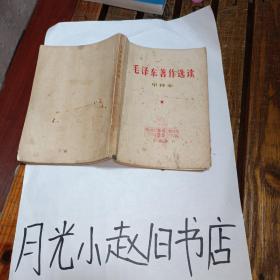 毛泽东著作选读
甲种本
月光小赵旧书店